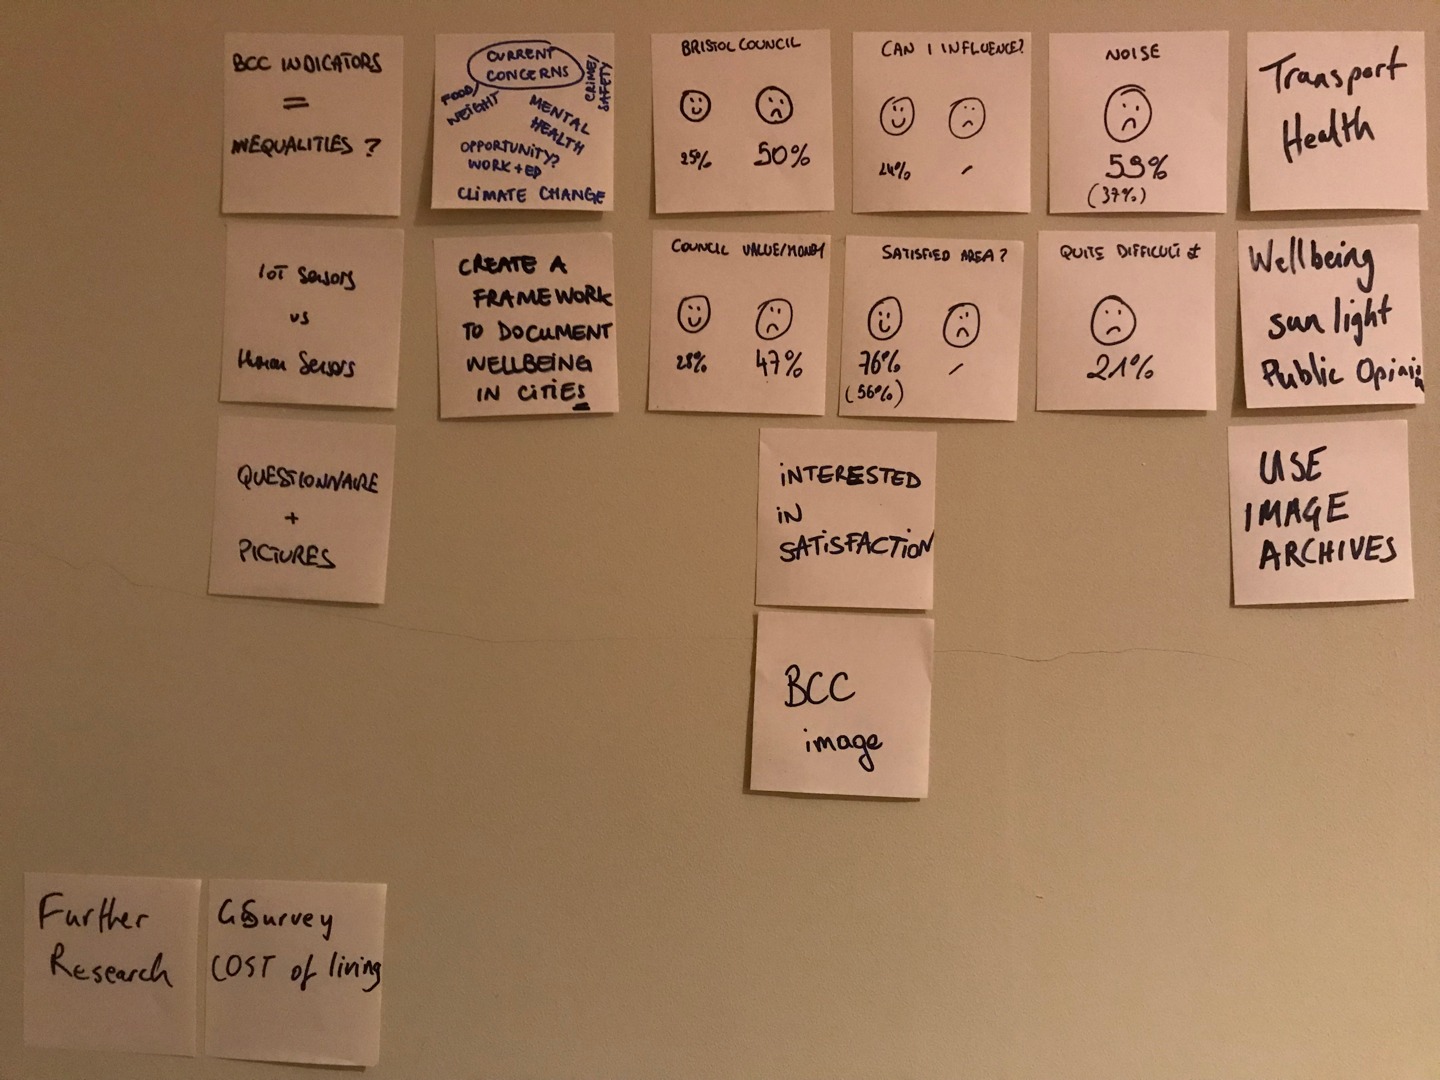 BCC INDICATORS
=
INEQUALITIES ?
CURRENT
CONCERNS
CRIME/
SAFETY
FOOD/
WEIGHT
MENTAL
HEALTH
OPPORTUNITY?
WORK + ED
CLIMATE CHANGE
BRISTOL COUNCIL
25% 50%
CAN I INFLUENCE?
24% -
NOISE
53%
(37%)
Transport
Health
IoT Sensors
vs
Human Sensors
CREATE A
FRAMEWORK
TO DOCUMENT
WELLBEING
IN CITIES
COUNCIL VALUE/MONEY
28% 47%
SATISFIED AREA?
76% -
(56%)
QUITE DIFFICULT £
21%
Wellbeing
sun light
Public Opinion
QUESTIONNAIRE
+
PICTURES
INTERESTED
IN
SATISFACTION
USE
IMAGE
ARCHIVES
BCC
image
Further
Research
Survey
COST of living